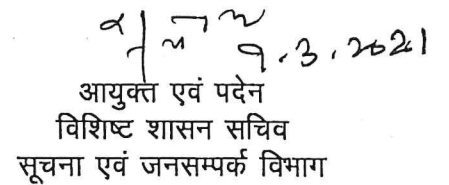 9.3.2021
आयुक्त एवं पदेन
विशिष्ट शासन सचिव
सूचना एवं जनसम्पर्क विभाग